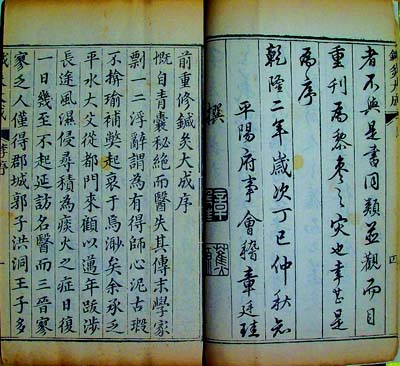 鍼灸大成
者不與是書同類並觀而目
重刊為黎棗之災也幸甚是
為序
乾隆二年歲次丁巳仲秋知
平陽府事會稽章廷珪
撰
前重修鍼灸大成序
慨自青囊秘絕而醫失其傳末學家
剽一二浮辭謂為有得師心泥古瑕
不揜瑜補獘起衰于焉渺矣余承乏
平水大父從都門來顧以邁年跋涉
長途風濕侵尋積為痰火之症日復
一日幾至不起延訪名醫而三晉寥
寥乏人僅得郡城郭子洪洞王子多